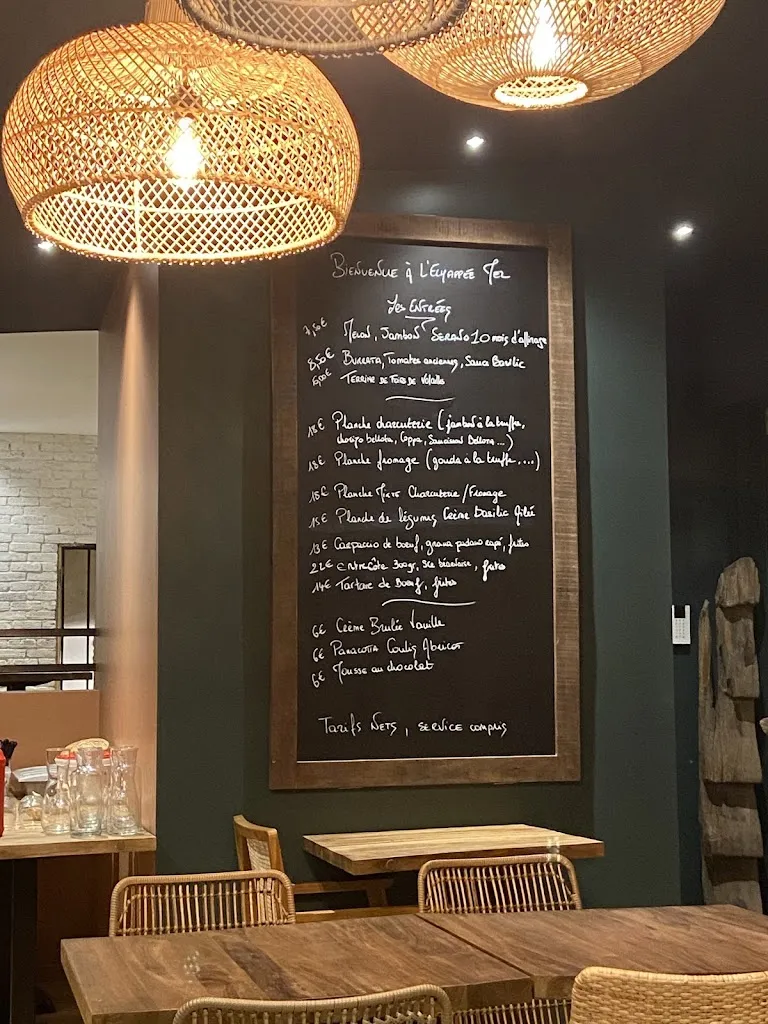 BIENVENUE À L'ECHAPPÉE MER
Les ENTRÉES
7,50€ MELON, JAMBON SERANO 10 mois d'affinage
8,50€ BURRATA, Tomates anciennes, Sauce Basilic
TERRINE DE FOIES DE Volaille
18€ Planche charcuterie (jambon à la truffe,
chorizo bellota, Coppa, Saucisson Bellota ...)
18€ Planche fromage (gouda à la truffe, ...)
18€ Planche Mixte Charcuterie / Fromage
15€ Planche de légumes Crème Basilic
Carpaccio de boeuf, grana padano râpé, frites
22€ ENTRECÔTE 300gr, Sce béarnaise, frites
14€ Tartare de Boeuf, frites
6€ Crème Brulée Vanille
6€ PANACOTTA Coulis Abricot
6€ Mousse au chocolat
Tarifs NETS, SERVICE COMPRIS